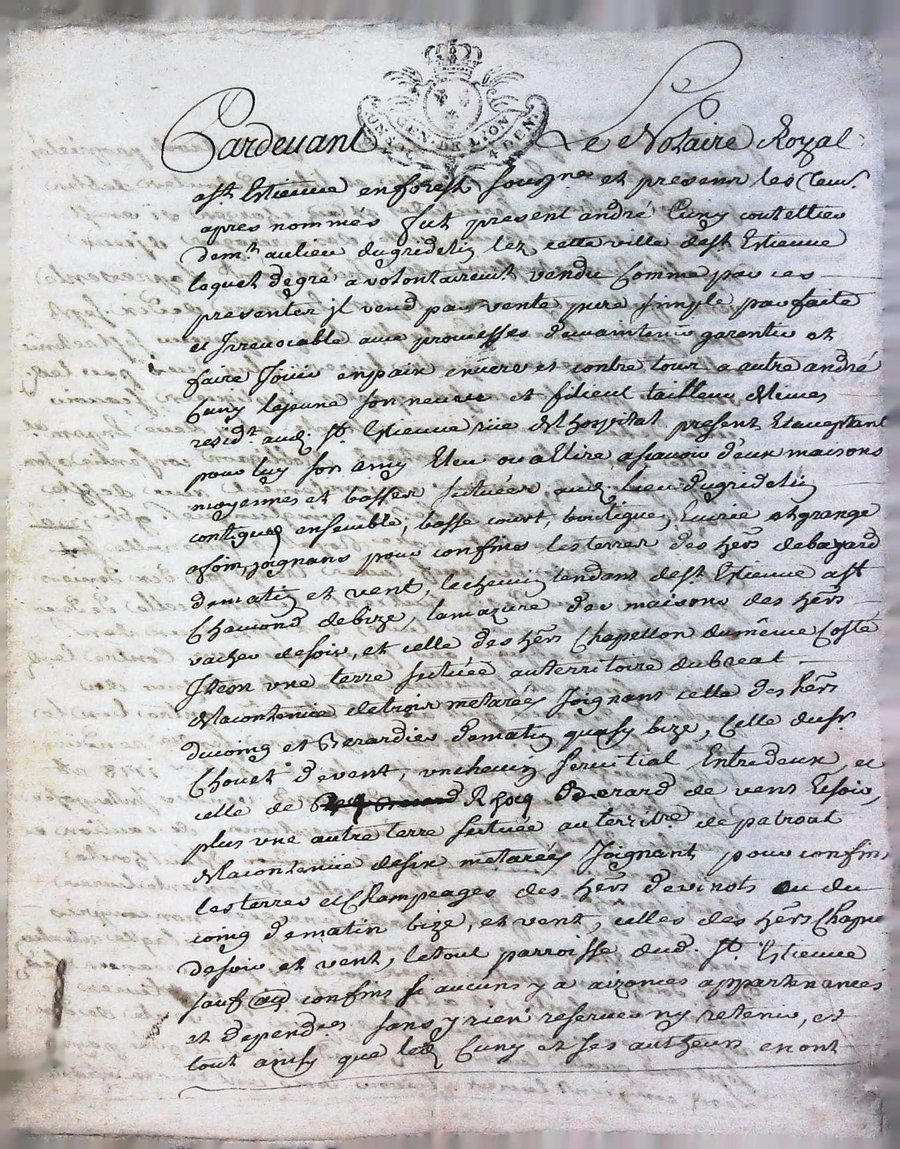 GEN. DE LION
4 DEN.
Pardevant Le Notaire Royal
a St Estienne en forest sousigné et presens les
apres nommés fut present andré Cuny couttellier
demt au lieu dugridelin lez cette ville de St Estienne
lequel de gré a volontairemt vendu comme par ces
presentes il vend par vente pure simple parfaite
et Irrevocable aux promesses de maintenir garentir et
faire Jouir en paix envers et contre tous a autre andré
Cuny lejeune son neveu et filleul tailleur de limes
residt aud. St Estienne rüe de Lhospital present et acceptant
pour luy son amy Eleu ou a Elire, asçavoir deux maisons
moyennes et basses situées aud. lieu dugridelin
contigues ensemble, basse court, boutique, Ecurie et grange
a foin, joignans pour confins les terres des hers debayard
dematin et vent, le chemin tendant de St Estienne a St
Chamond debize, la mazure des maisons des hers
vacher desoir, et celle des hers Chapellon du même Costé
Item une terre située au territoire dubreat
de la contenüe de trois metarées Joignans celle des hers
ducoing et Berardier dematin quasy bize, Celle du sr
Chovet devent, un chemin servitial Entredeux, et
celle de Berard de vent et soir,
plus une autre terre située au territre de patroat
de la contenüe de six metarées Joignant pour confins
les terres et Champeages des hers devinots ou du
coing dematin bize, et vent, celles des hers
desoir et vent, le tout parroisse dud. St Estienne
sauf confins si aucuns y a aizances appartenances
et dependces sans y rien reserver ny retenir, et
tout ainsy que led. Cuny et ses autheurs en ont